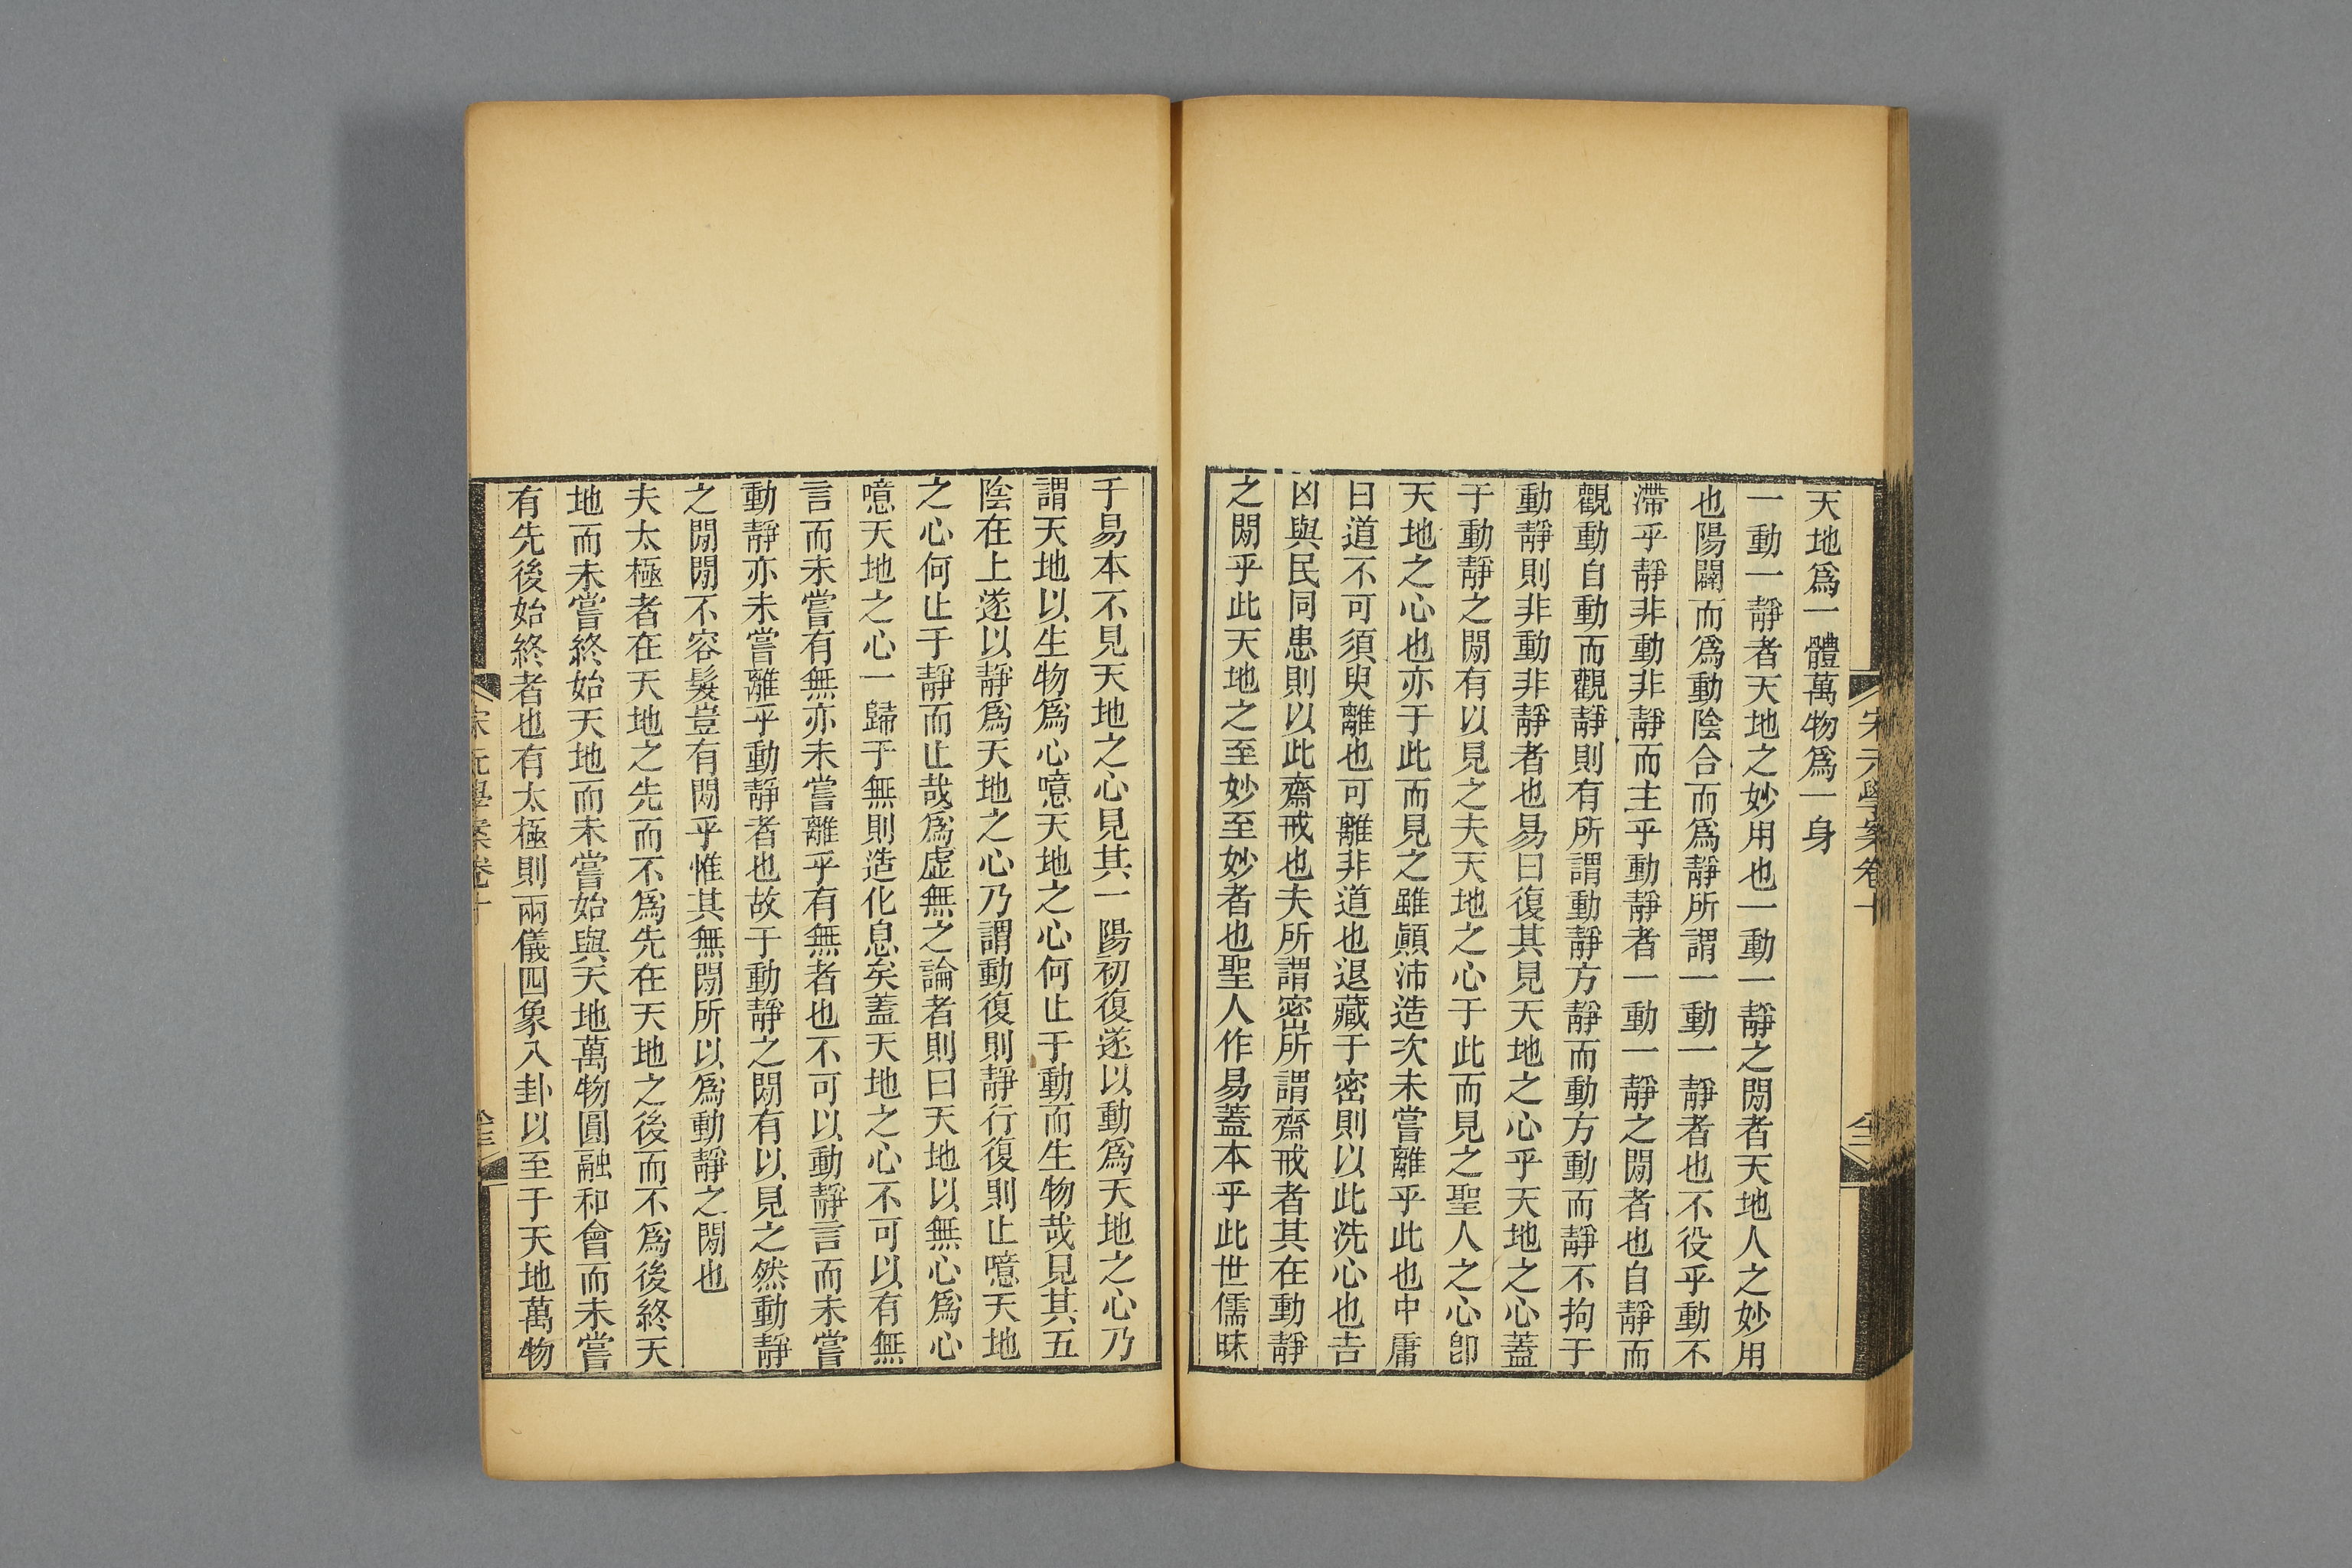 宋元學案卷十
天地爲一體萬物爲一身
一動一靜者天地之妙用也一動一靜之閒者天地人之妙用
也陽闢而爲動陰合而爲靜所謂一動一靜者也不役乎動不
滯乎靜非動非靜而主乎動靜者一動一靜之閒者也自靜而
觀動自動而觀靜則有所謂動靜方靜而動方動而靜不拘于
動靜則非動非靜者也易曰復其見天地之心乎天地之心蓋
于動靜之閒有以見之夫天地之心于此而見之聖人之心卽
天地之心也亦于此而見之雖顚沛造次未嘗離乎此也中庸
曰道不可須臾離也可離非道也退藏于密則以此洗心也吉
凶與民同患則以此齋戒也夫所謂密所謂齋戒者其在動靜
之閒乎此天地之至妙至妙者也聖人作易蓋本乎此世儒昧
于易本不見天地之心見其一陽初復遂以動爲天地之心乃
謂天地以生物爲心噫天地之心何止于動而生物哉見其五
陰在上遂以靜爲天地之心乃謂動復則靜行復則止噫天地
之心何止于靜而止哉爲虛無之論者則曰天地以無心爲心
噫天地之心一歸于無則造化息矣蓋天地之心不可以有無
言而未嘗有無亦未嘗離乎有無者也不可以動靜言而未嘗
動靜亦未嘗離乎動靜者也故于動靜之閒有以見之然動靜
之閒閒不容髮豈有閒乎惟其無閒所以爲動靜之閒也
夫太極者在天地之先而不爲先在天地之後而不爲後終天
地而未嘗終始天地而未嘗始與天地萬物圓融和會而未嘗
有先後始終者也有太極則兩儀四象八卦以至于天地萬物
宋元學案卷十